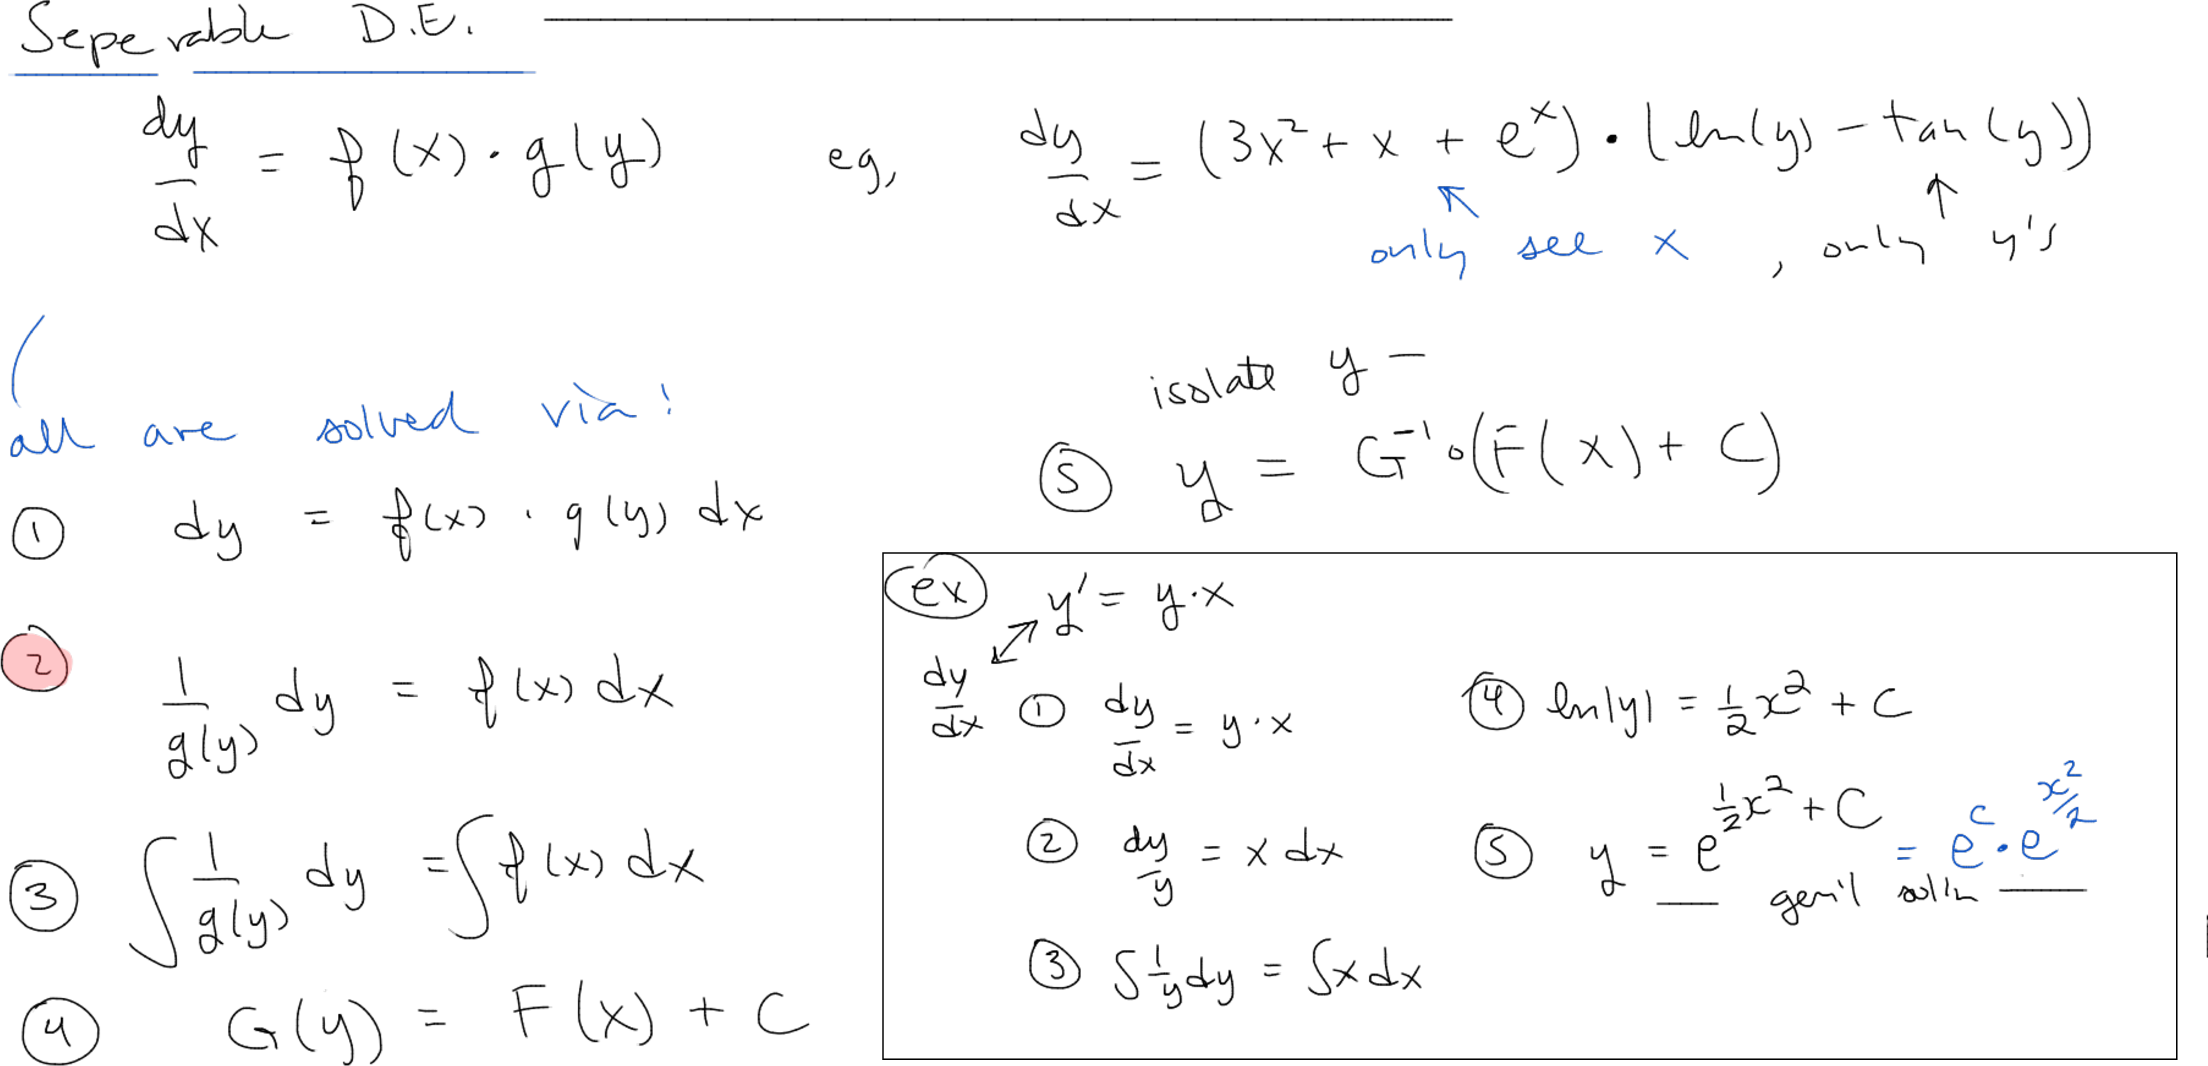 Seperable D.E.
dy/dx = f(x) · g(y) eg, dy/dx = (3x² + x + e^x) · (ln(y) - tan(y))
only see x , only y's
all are solved via:
① dy = f(x) · g(y) dx
② 1/g(y) dy = f(x) dx
③ ∫ 1/g(y) dy = ∫ f(x) dx
④ G(y) = F(x) + C
isolate y -
⑤ y = G⁻¹∘(F(x) + C)
ex y' = y·x
dy/dx
① dy/dx = y·x
② dy/y = x dx
③ ∫ 1/y dy = ∫ x dx
④ ln|y| = 1/2 x² + C
⑤ y = e^(1/2 x² + C) = e^c · e^(x²/2)
gen'l sol'n